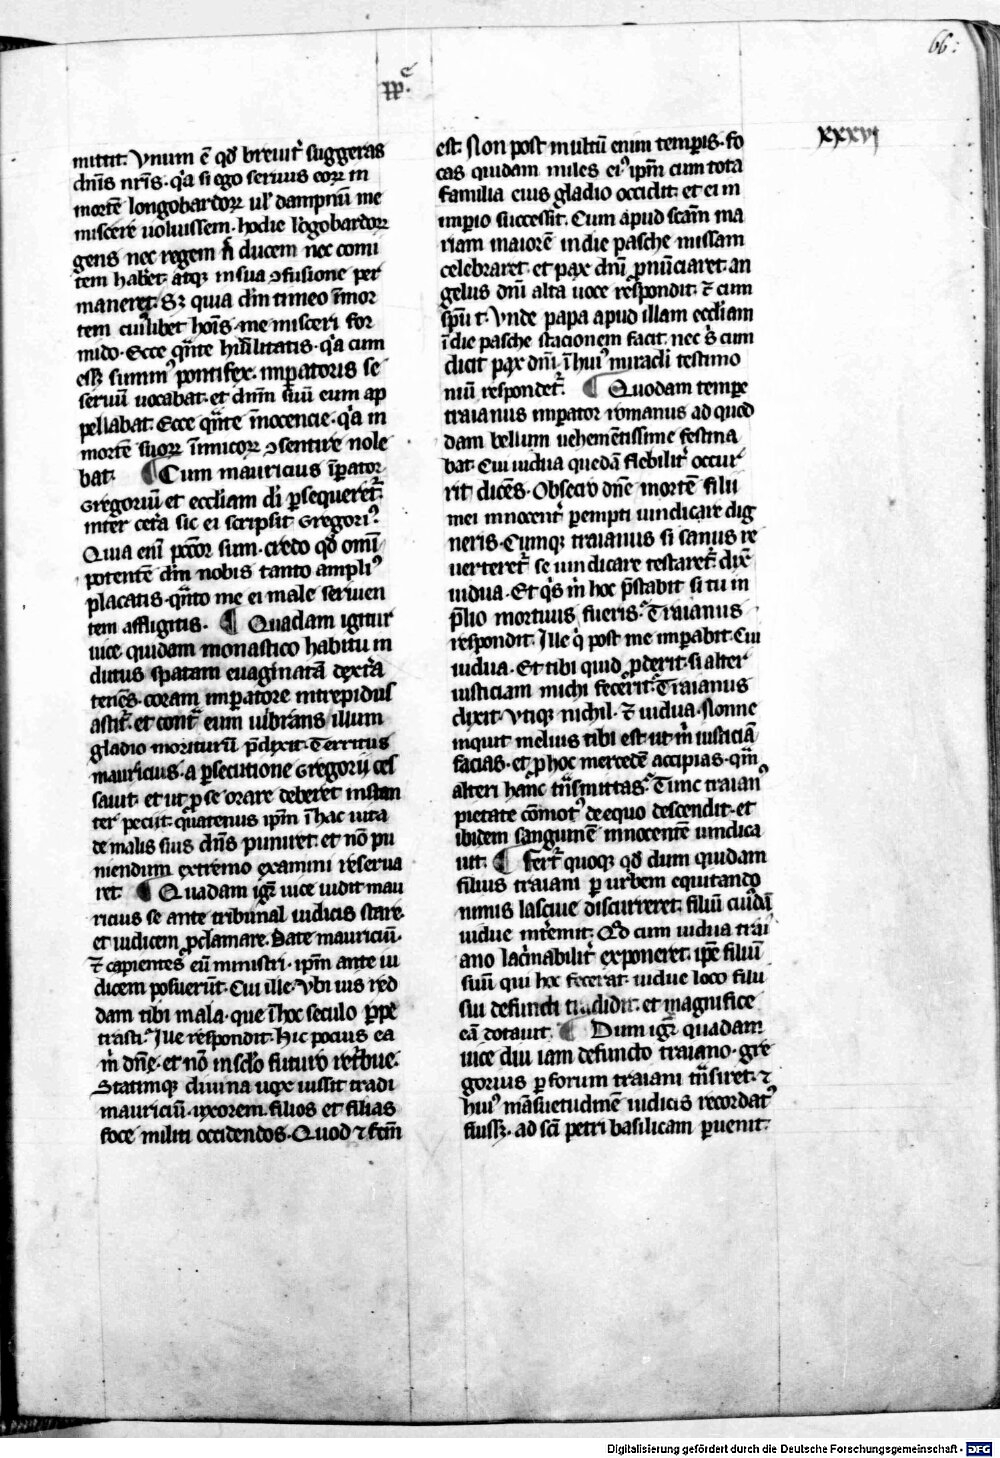 66:
xxxvj
mittit. Vnum ē qd̄ breuit̄ suggeras
dn̄is nr̄is. qa si ego seruus eoꝝ in
mortē longobardoꝝ ul' dampnū me
miscere uoluissem. hodie lōgobardoꝝ
gens nec regem ducem nec comi
tem habet. atqꝫ in sua ꝯfusione per
maneret. Sꝫ quia dm̄ timeo in mor
tem cuiꝰlibet hoīs me misceri for
mido. Ecce qn̄te humilitatis. qa cum
eēt summꝰ pontifex. imꝑatoris se
seruū uocabat. et dn̄m suū eum ap
pellabat. Ecce qn̄te īnocencie. qa in
mortē suoꝝ īimicoꝝ ꝯsentire nole
bat. ¶ Cum mauricius īꝑator
Gregoriū et eccliam di ꝑsequeret̄
inter cet̄a sic ei scripsit Gregoriꝰ.
Quia eni pctor sum. credo qd̄ omī
potentē dm̄ nobis tanto ampliꝰ
placatis. qn̄to me ei male seruien
tem affligitis. ¶ Quadam igitur
uice quidam monastico habitu in
dutus spatam euaginatā dext̄a
tenēs. coram imꝑatore intrepidus
astit̄. et cont̄ eum uibrans illum
gladio moriturū p̄dixit. Territus
mauricius. a ꝑsecutione Gregorii ces
sauit. et ut ꝓ se orare deberet instan
ter peciit. qͣtenus ipm̄ ī hac uita
de malis suis dn̄s puniret. et nō pu
niendum extremo examini reserua
ret. ¶ Quadam igr̄ uice uidit mau
ricius se ante tribunal iudicis stare.
et iudicem ꝓclamare. Date mauriciū.
⁊ capientes eū ministri. ipm̄ ante iu
dicem posuerūt. Cui ille. Vbi uis red
dam tibi mala. que ī hoc seculo ꝑpe
trasti. Ille respondit. Hic pocius ea
m̄ dn̄e. et nō in sclo futuro ret̄bue.
Statimqꝫ diuina uox iussit tradi
mauriciū. uxorem. filios et filias
foce militi occidendos. Quod ⁊ fcm̄
est. Non post multū enim temꝑis. fo
cas quidam miles eiꝰ ipm̄ cum tota
familia eius gladio occidit. et ei in
imꝑio successit. Cum apud scam ma
riam maiorē in die pasche missam
celebraret. et pax dn̄i ꝓnūciaret. an
gelus dn̄i alta uoce respondit. ⁊ cum
spū t. Vnde papa apud illam eccliam
ī die pasche stacionem facit. nec ei cum
dicit pax dn̄i. ī huiꝰ miraculi testimo
niū respondet̄. ¶ Quodam tempe
traianus imꝑator romanus ad quod
dam bellum uehemētissime festina
bat. Cui uidua quedā flebilit̄ occur
rit dicēs. Obsecro dn̄e mortē filii
mei innocent̄ ꝑempti uindicare dig
neris. Cumqꝫ traianus si sanus re
uerteret̄ se uindicare testaret̄. dix̄
uidua. Et qͥs m̄ hoc p̄stabit si tu in
p̄lio mortuus fueris. Traianus
respondit. Ille qͥ post me imꝑabit. Cui
uidua. Et tibi quid ꝓderit. si alter
iusticiam michi fecerit. Traianus
dixit. Vtiqꝫ nichil. ⁊ uidua. Nonne
inquit melius tibi est ut m̄ iusticiā
facias. et ꝑ hoc mercedē accipias. qm̄
alteri hanc tn̄smittas. Tunc traianꝰ
pietate cōmotꝰ de equo descendit. et
ibidem sanguinē innocentē uindica
uit. ¶ Fert̄ quoqꝫ qd̄ dum quidam
filius traiani ꝑ urbem equitando
nimis lasciue discurreret. filiū cuiꝰdā
uidue int̄emit. Qd̄ cum uidua trai
ano lac̄mabilit̄ exponeret. ipe filiū
suū qui hoc fecerat. uidue loco filii
sui defuncti tradidit. et magnifice
eā dotauit. ¶ Dum igr̄ quadam
uice diu iam defuncto traiano. gre
gorius ꝑ forum traiani tn̄siret. ⁊
huiꝰ māsuetudinē iudicis recordatꝰ
fuissꝫ. ad sci petri basilicam ꝑuenit.
Digitalisierung gefördert durch die Deutsche Forschungsgemeinschaft - DFG